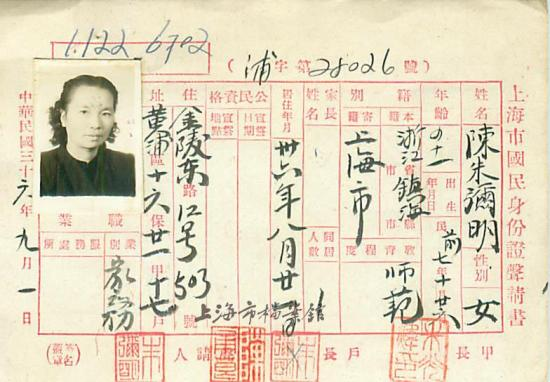 1122 6702
(浦 字第 28026 號)
上海市國民身份證聲請書
姓名 陳朱彌明 性別 女
年齡 四十一 出生年月日 民前七年十月廿六
籍別 本籍 浙江省鎮海縣市
寄籍 上海市 教育程度 师范
家長姓名 同居人數
居住年月 卅六年八月廿
公民資格 宣誓日期 宣誓地點
住址 金陵東路 號 503
黃浦區十六保廿一甲十七戶
職業 業別 家務 服務處所
上海市檔案館
甲長 戶長 聲請人 簽名蓋章
中華民國三十六年九月一日